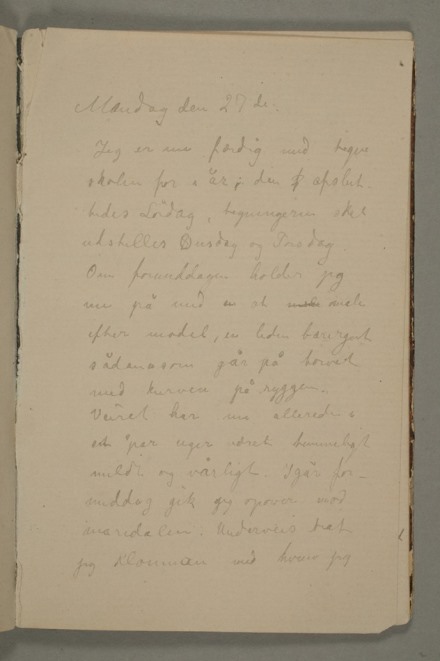 Mandag den 27de.
Jeg er nu færdig med tegne
skolen for i år; den afslut-
tedes Lördag, tegningerne skal
udstilles Onsdag og Torsdag.
Om formiddagen holder jeg
nu på med at
efter model, en liden
sådan som går på torvet
med kurven på ryggen.
Veiret har nu allerede i
et par uger været
mildt og vårligt. Igår for-
middag gik jeg opover mod
Maridalen. Underveis traf
jeg Klouman med hvem jeg